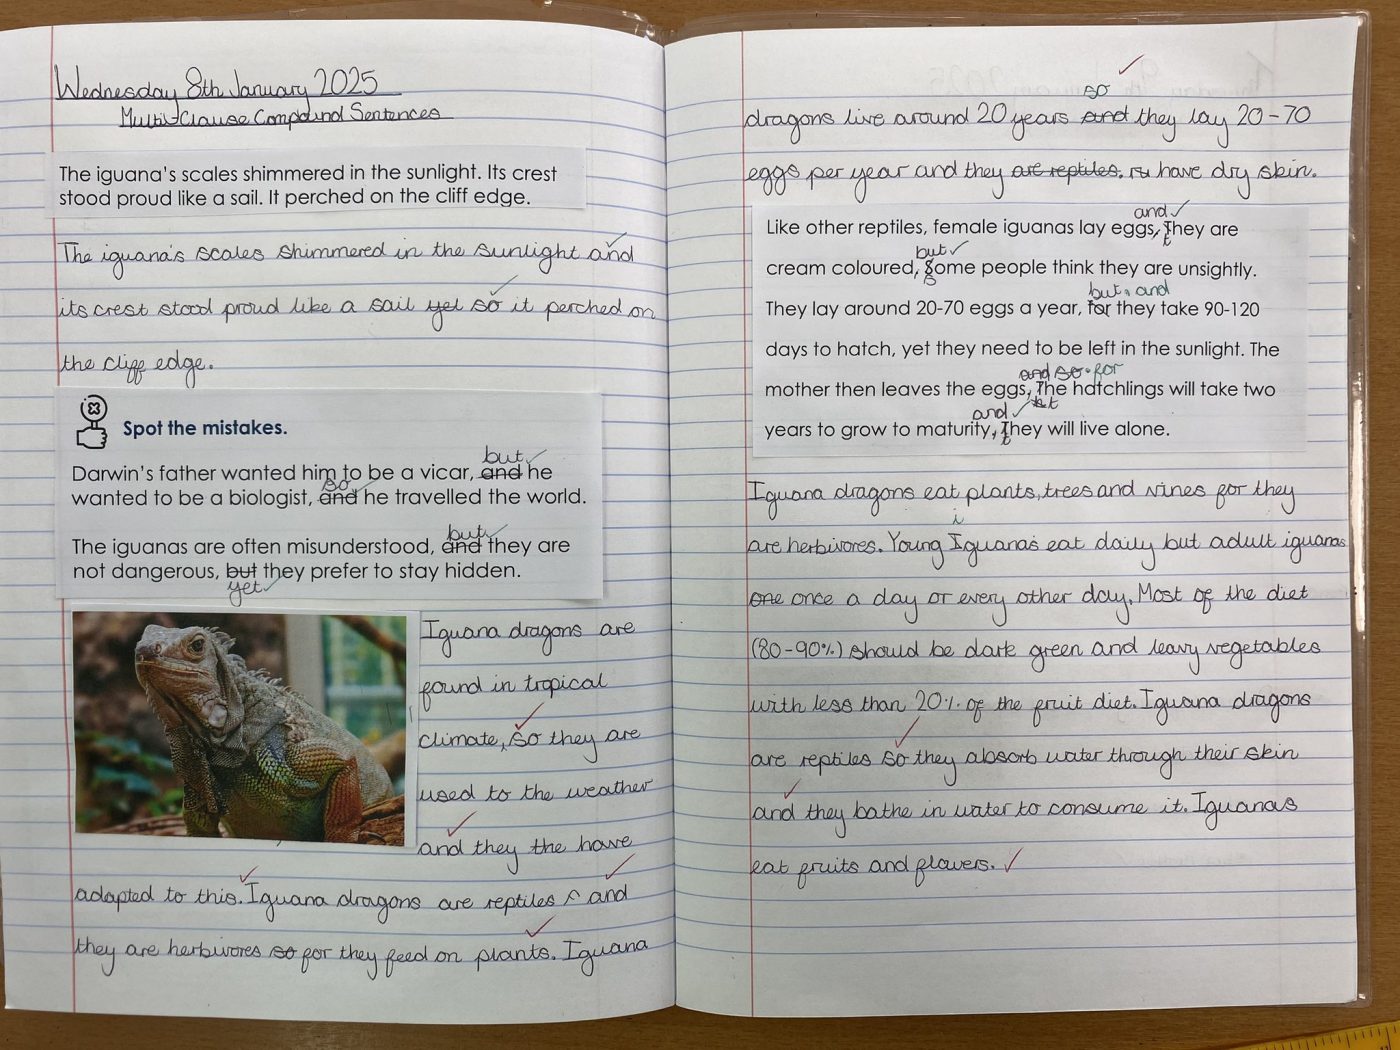 Wednesday 8th January 2025
Multi-Clause Compound Sentences
The iguana's scales shimmered in the sunlight. Its crest
stood proud like a sail. It perched on the cliff edge.
The iguana's scales shimmered in the sunlight and
its crest stood proud like a sail yet so it perched on
the cliff edge.
Spot the mistakes.
but
Darwin's father wanted him to be a vicar, and he
so
wanted to be a biologist, and he travelled the world.
but
The iguanas are often misunderstood, and they are
not dangerous, but they prefer to stay hidden.
yet
Iguana dragons are
found in tropical
climate, so they are
used to the weather
and they the have
adapted to this. Iguana dragons are reptiles and
they are herbivores so for they feed on plants. Iguana
so
dragons live around 20 years and they lay 20-70
eggs per year and they are reptiles. have dry skin.
and
Like other reptiles, female iguanas lay eggs, They are
t
but
cream coloured, Some people think they are unsightly.
s
but, and
They lay around 20-70 eggs a year, for they take 90-120
days to hatch, yet they need to be left in the sunlight. The
and so for
mother then leaves the eggs, The hatchlings will take two
t
and
years to grow to maturity, They will live alone.
t
Iguana dragons eat plants, trees and vines for they
i
are herbivores. Young Iguanas eat daily but adult iguanas
one once a day or every other day. Most of the diet
(80-90%) should be dark green and leavy vegetables
with less than 20% of the fruit diet. Iguana dragons
are reptiles so they absorb water through their skin
and they bathe in water to consume it. Iguanas
eat fruits and flowers.